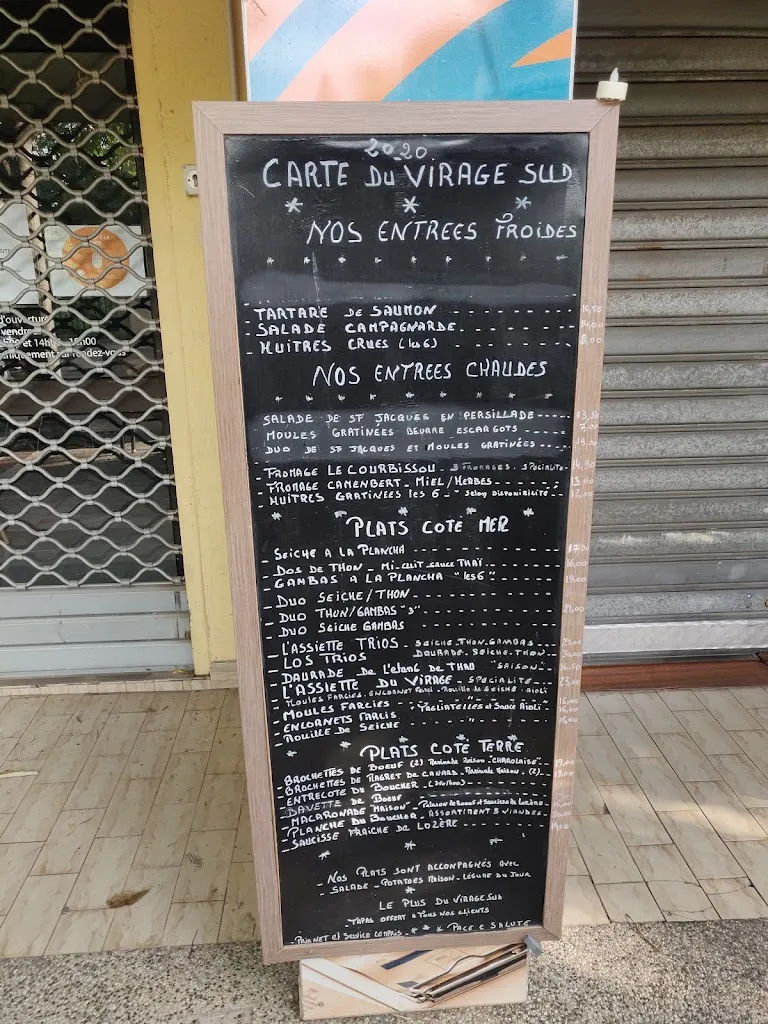 2020
CARTE DU VIRAGE SUD
NOS ENTREES FROIDES
- TARTARE DE SAUMON
- SALADE CAMPAGNARDE
- HUITRES CRUES (les 6)
NOS ENTREES CHAUDES
SALADE DE ST JACQUES EN PERSILLADE
MOULES GRATINEES BEURRE ESCARGOTS 7,00
DUO DE ST JACQUES ET MOULES GRATINÉES
- FROMAGE LE COURBISSOU - 3 FROMAGES. SPECIALITE
- FROMAGE CAMENBERT - MIEL/HERBES
- HUITRES GRATINEES les 6 - "Selon DISPONIBILITÉ" 12,00
PLATS COTE MER
- SEICHE A LA PLANCHA
- DOS DE THON - MI-CUIT SAUCE THAÏ 16,00
- GAMBAS A LA PLANCHA "les 6" 19,00
- DUO SEICHE/THON
- DUO THON/GAMBAS "3" 21,00
- DUO SEICHE GAMBAS
- L'ASSIETTE TRIOS - SEICHE.THON.GAMBAS
- LOS TRIOS DAURADE.SEICHE.THON
- DAURADE DE L'étang DE THAU "SAISON"
- L'ASSIETTE DU VIRAGE - SPECIALITE 23,00
MOULES FARCIES. ENCORNET FARCI. ROUILLE DE SEICHE. AIOLI
- MOULES FARCIES "TAGLIATELLES et SAUCE AIOLI"
- ENCORNETS FARCIS " "
- ROUILLE DE SEICHE "
PLATS COTE TERRE
- BROCHETTES DE BOEUF (2) MARINADE MAISON - CHAROLAISE
- BROCHETTES DE MAGRET DE CANARD - MARINADE MAISON - (2)
- ENTRECOTE DU BOUCHER
- BAVETTE DE BOEUF
- MACARONADE MAISON
- PLANCHE DU BOUCHER - ASSORTIMENT 3 VIANDES
- SAUCISSE FRAÎCHE DE LOZÈRE
- NOS PLATS SONT ACCOMPAGNÉS AVEC
- SALADE - POTATOES MAISON - LÉGUME DU JOUR
LE PLUS DU VIRAGE SUD
- TAPAS OFFERT A TOUS NOS CLIENTS
- PRIX NET et SERVICE COMPRIS - PACE E SALUTE